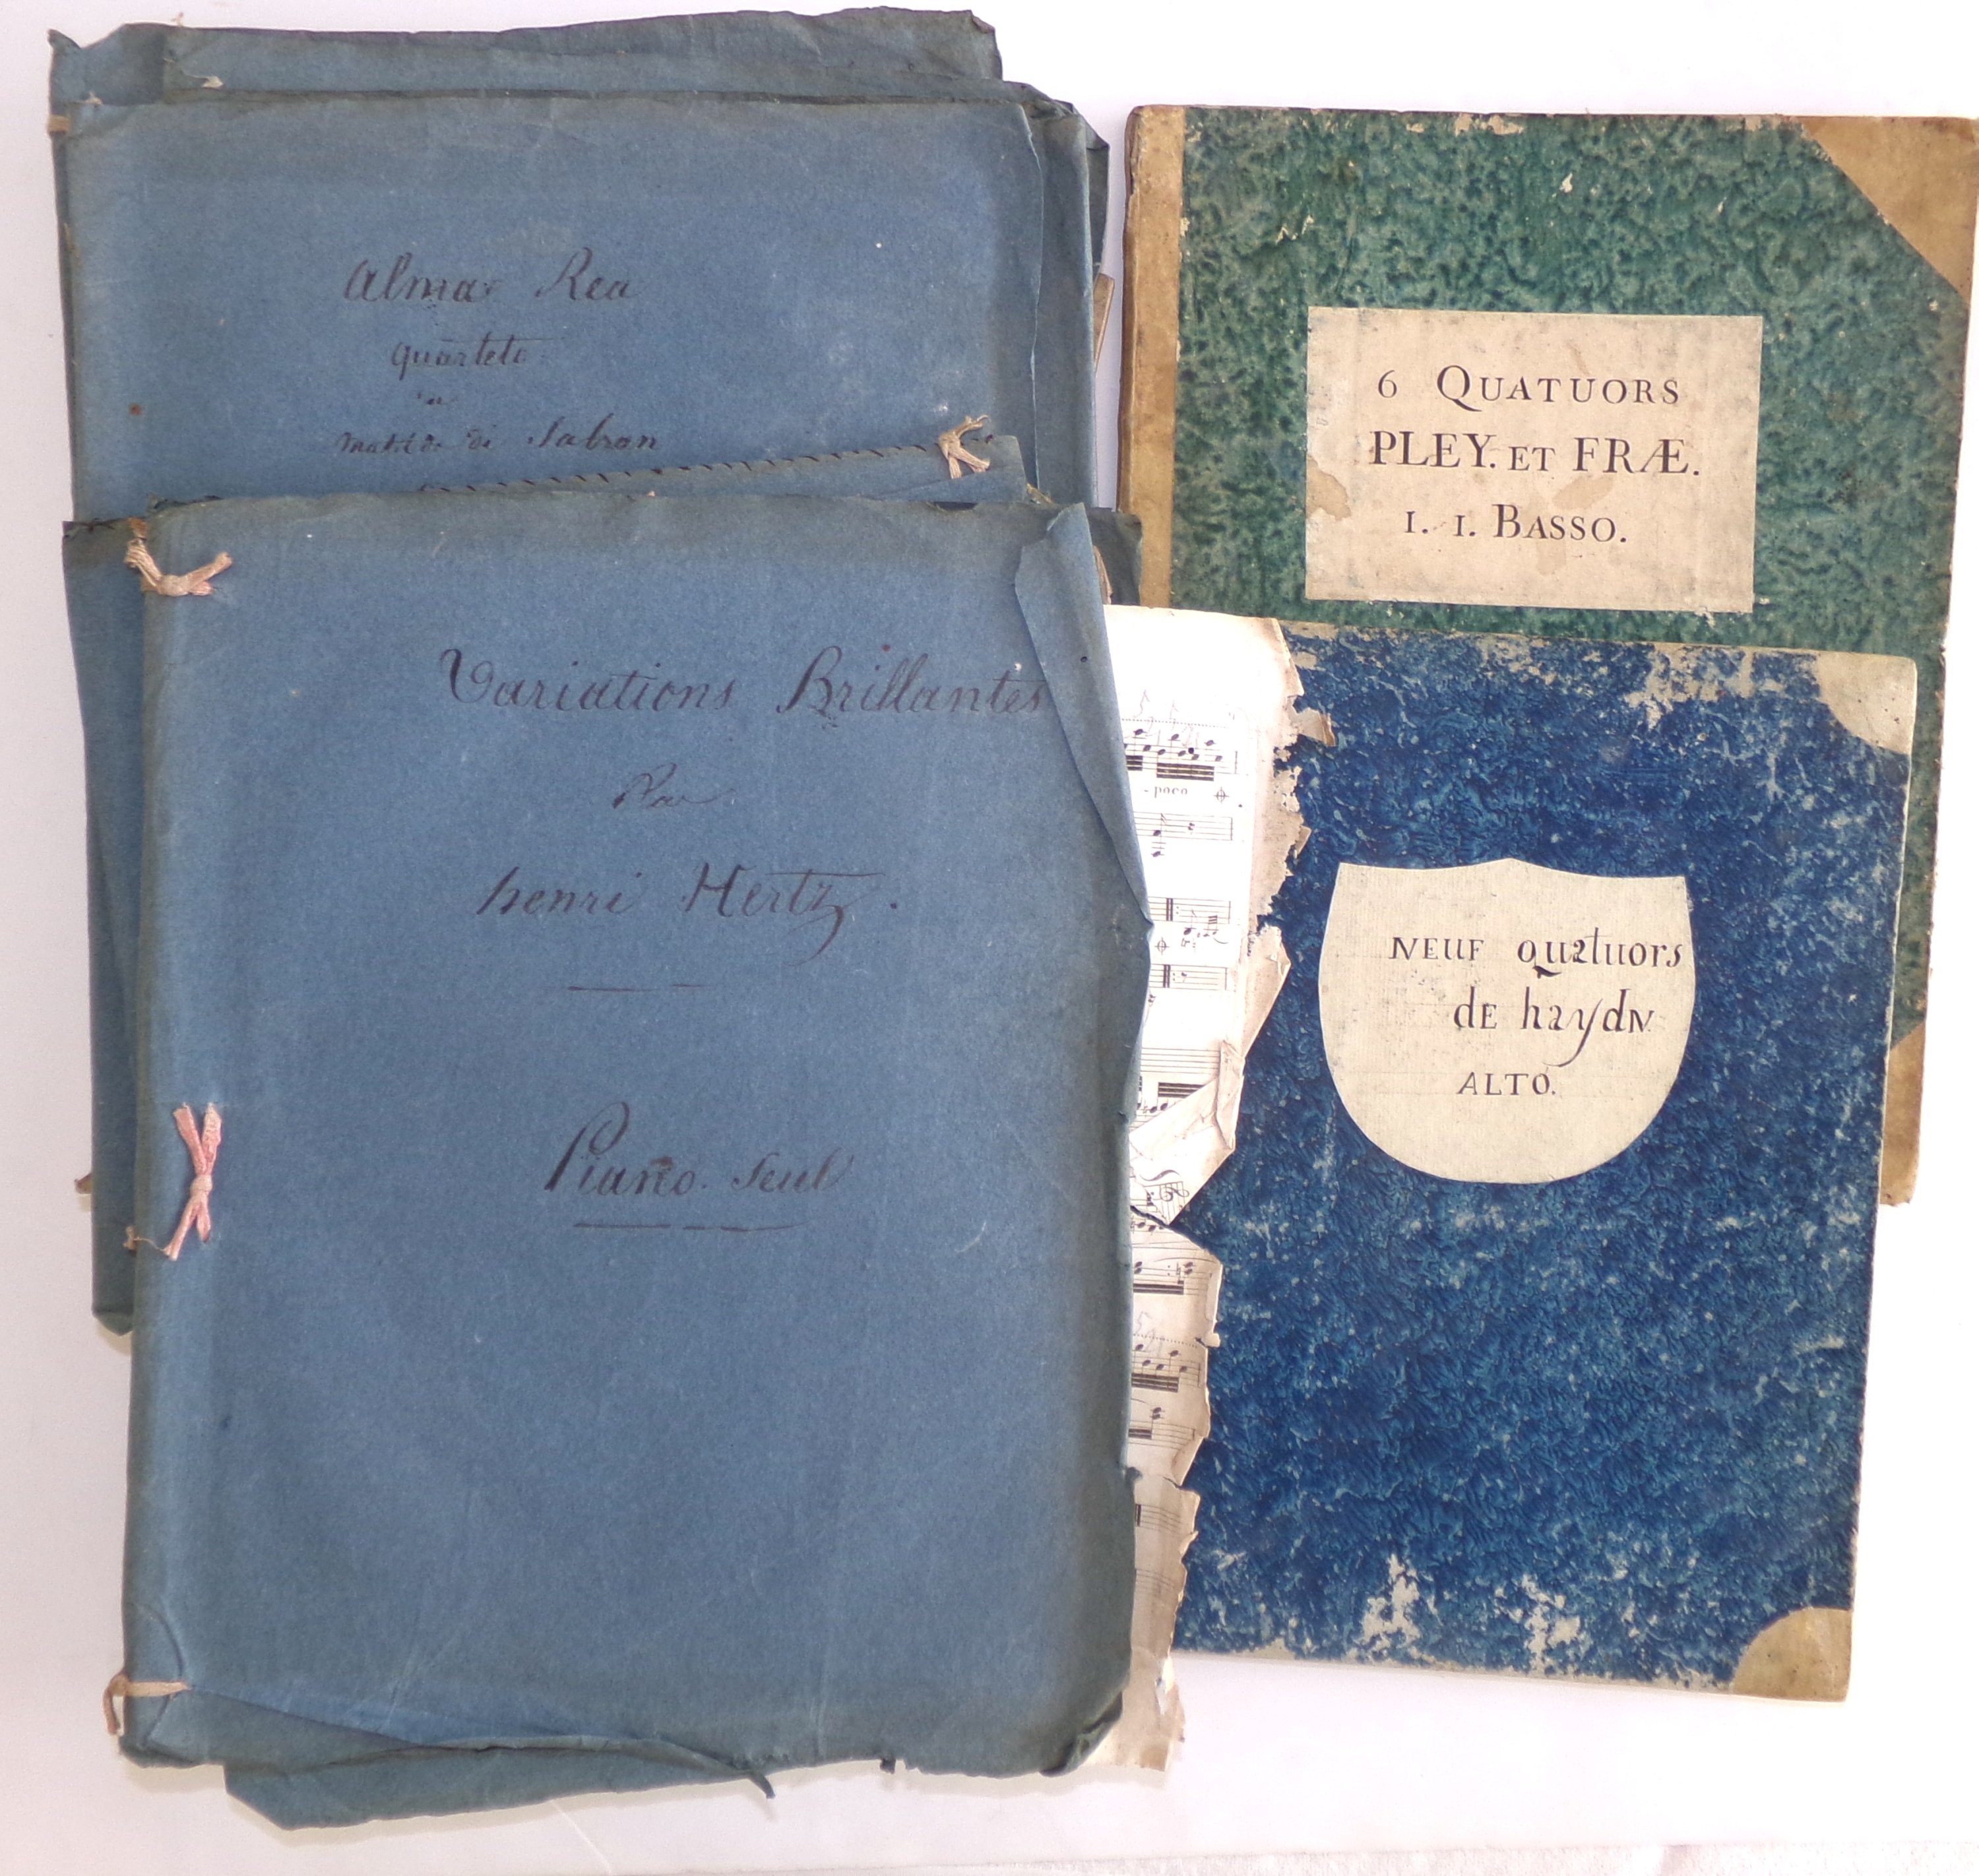 Alma Rea
quarteto
Matilde di Sabran
Variations Brillantes
Par
henri Hertz.
Piano. Seul
6 QUATUORS
PLEY. ET FRÆ.
1. 1. BASSO.
- poco
NEUF quatuors
dE haydN.
ALTO.